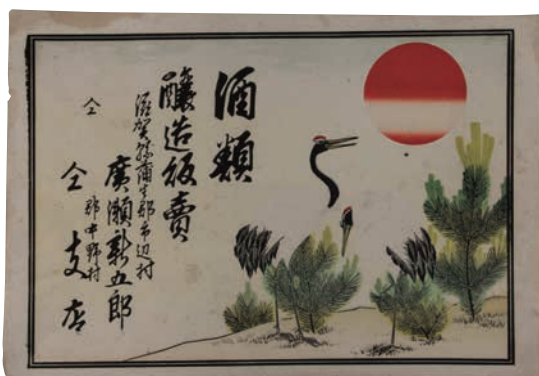 酒類
醸造販賣
滋賀縣蒲生郡市辺村
廣瀬新五郎
仝 郡中野村
仝支店